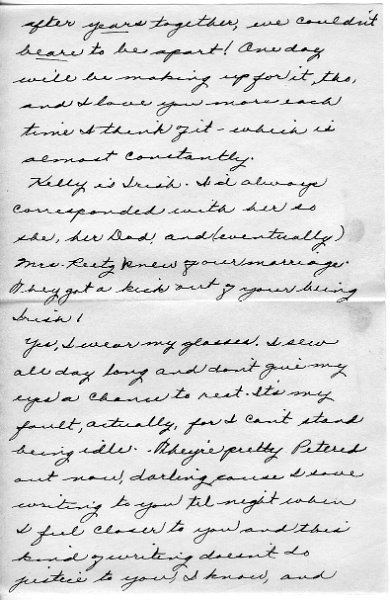 after years together, we couldn't
beare to be apart! One day
will be making up for it, tho,
and I love you more each
time I think of it - which is
almost constantly.
Kelly is Irish. I'd always
corresponded with her so
she, her Dad, and (eventually)
Mrs. Reetz knew of our marriage.
They got a kick out of your being
Irish!
Yes, I wear my glasses. I sew
all day long and don't give my
eyes a chance to rest. It's my
fault, actually, for I can't stand
being idle. They're pretty Petered
out now, darling, cause I save
writing to you til night when
I feel closer to you and this
kind of writing doesn't do
justice to you, I know, and